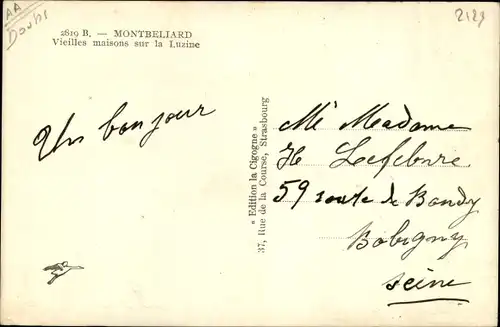 AA
Doubs
2129
2819 B. — MONTBELIARD
Vieilles maisons sur la Luzine
Un bonjour
« Edition la Cigogne »
37, Rue de la Course, Strasbourg
Mr Madame
H Lefebvre
59 route de Bondy
Bobigny
Seine